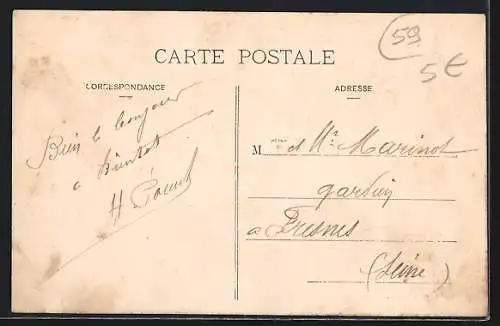 59
5€
CARTE POSTALE
CORRESPONDANCE
ADRESSE
Bien le bonjour
a bientot
H
M et Mr Marinot
à Fresnes
(Seine)